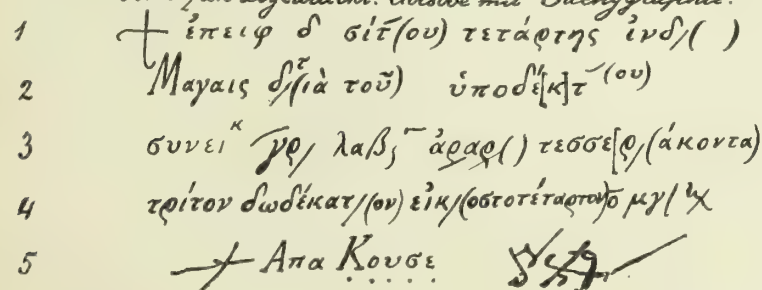 1 + ἐπειφ δ σίτ(ου) τετάρτης ἰνδ/( )
2 Μαγαις δ/(ιὰ τοῦ) ὑποδέ[κ]τ(ου)
3 συνει λαβ ἀραρ( ) τεσσε[ρ/(άκοντα)
4 τρίτον δωδέκατ/(ον) εἰκ/(οστοτέταρτον) μγ/
5 + Απα Κουσε